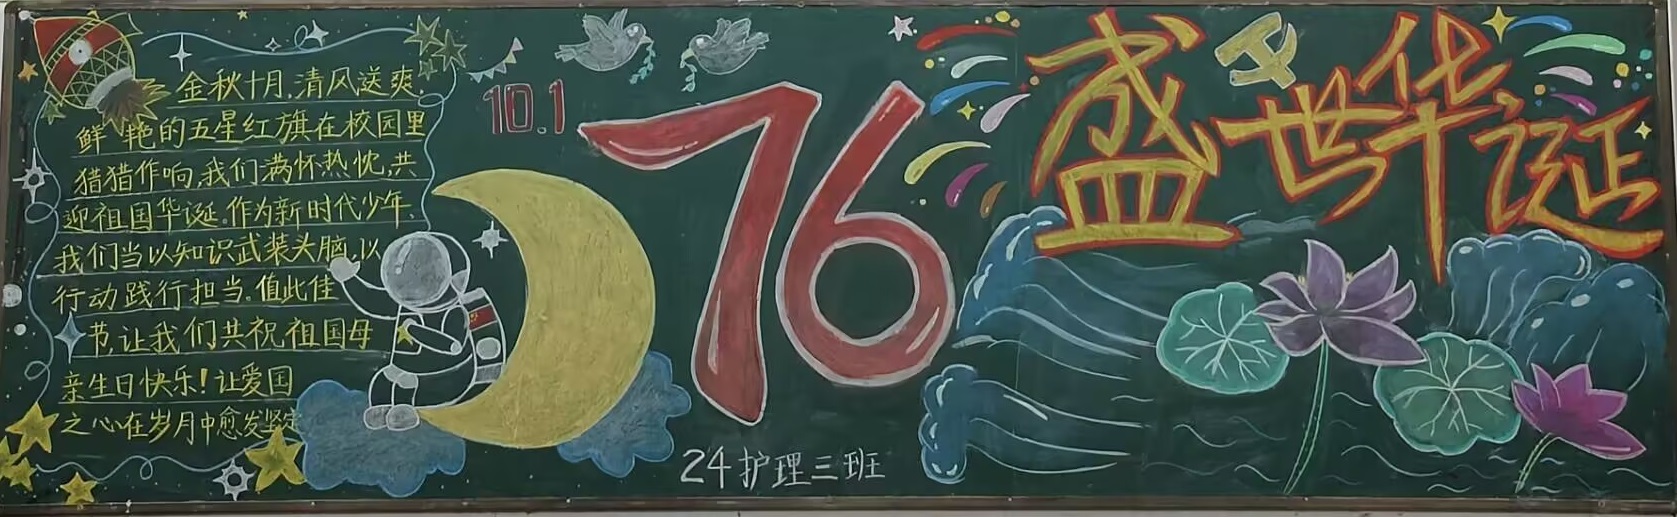 金秋十月,清风送爽,
鲜艳的五星红旗在校园里
猎猎作响,我们满怀热忱,共
迎祖国华诞。作为新时代少年、
我们当以知识武装头脑,以
行动践行担当。值此佳
节,让我们共祝祖国母
亲生日快乐!让爱国
之心在岁月中愈发坚定
10.1
76
盛世华诞
24护理三班